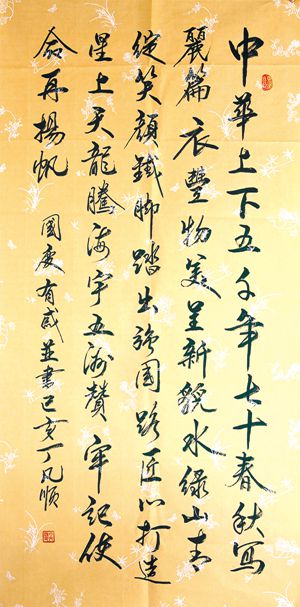 中華上下五千年七十春秋寫
麗篇衣豐物美呈新貌水綠山青
綻笑顏鐵脚踏出强國路匠心打造
星上天龍騰海宇五洲贊牢記使
命再揚帆 國慶有感並書己亥丁順